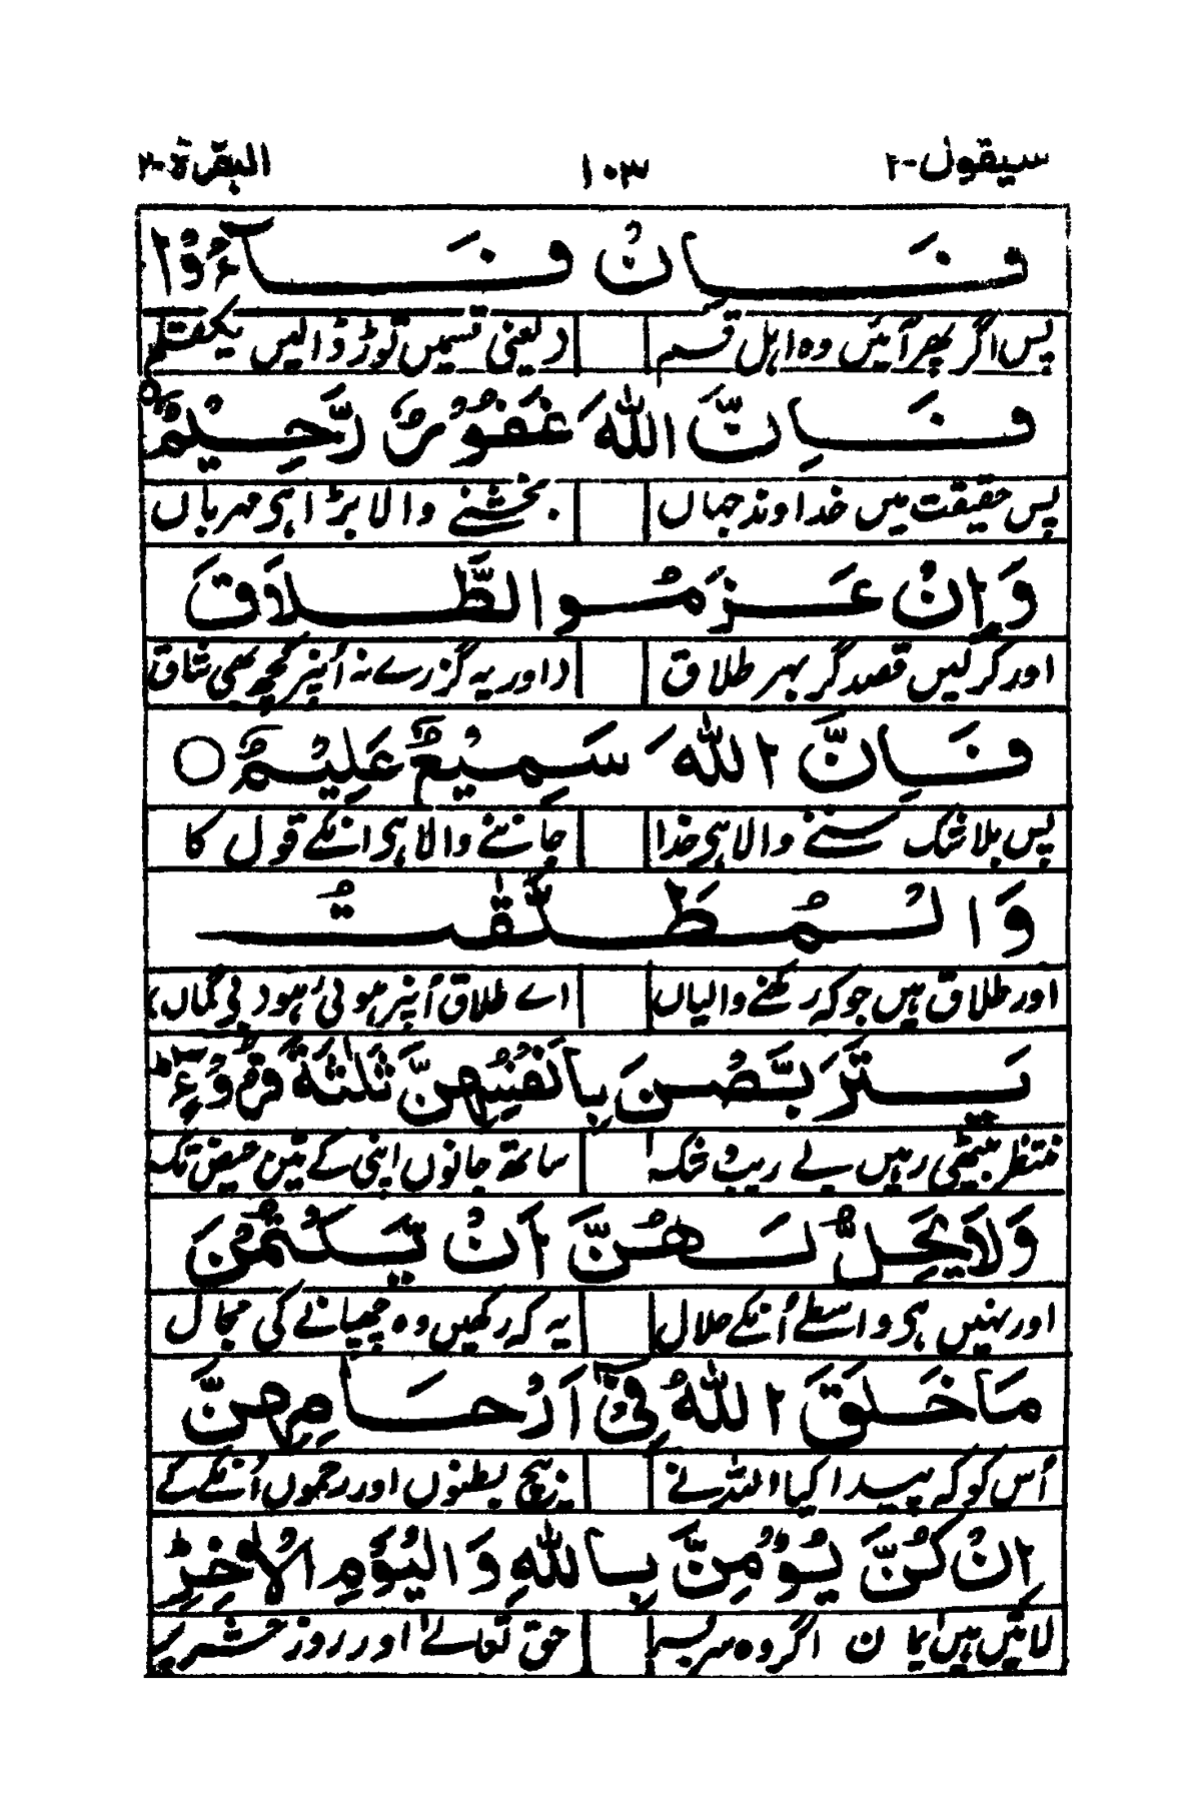 سیقول-۲ ۱۰۳ البقرة-۲
فَـاِنْ فَـآءُوْا
پس اگر پھر آئیں وہ اہل قسم (یعنی قسمیں توڑ ڈالیں یکقلم
فَـاِنَّ اللّٰهَ غَفُوْرٌ رَّحِیْمٌ
پس حقیقت میں خداوند جہاں بخشنے والا بڑا ہی مہرباں
وَاِنْ عَزَمُوا الطَّلَاقَ
اور کرلیں قصد گر بہر طلاق (اور یہ گزرے نہ اُنپر کچھ بھی شاق
فَاِنَّ اللّٰهَ سَمِیْعٌ عَلِیْمٌ ○
پس بلا شک سننے والا ہی خدا جاننے والا ہی انکے قول کا
وَالْمُطَلَّقٰتُ
اور طلاق ہیں جو کہ رکھنے والیاں اے طلاق اُنپر ہوئی ہو دبی گماں
یَتَرَبَّصْنَ بِاَنْفُسِهِنَّ ثَلٰثَةَ قُرُوْٓءٍ
منتظر بیٹھی رہیں بے ریب و شک ساتھ جانوں اپنی کے تین حیض تک
وَلَا یَحِلُّ لَهُنَّ اَنْ یَّكْتُمْنَ
اور نہیں ہی واسطے اُنکے حلال یہ کہ رکھیں وہ چھپانے کی مجال
مَا خَلَقَ اللّٰهُ فِیْٓ اَرْحَامِهِنَّ
اُس کو کہ پیدا کیا اللہ نے بیچ بطنوں اور رحموں اُنکے کے
اِنْ كُنَّ یُؤْمِنَّ بِاللّٰهِ وَالْیَوْمِ الْاٰخِرِ
لائیں ہیں ایمان اگر وہ سربسر حق تعالےٰ اور روز حشر پر